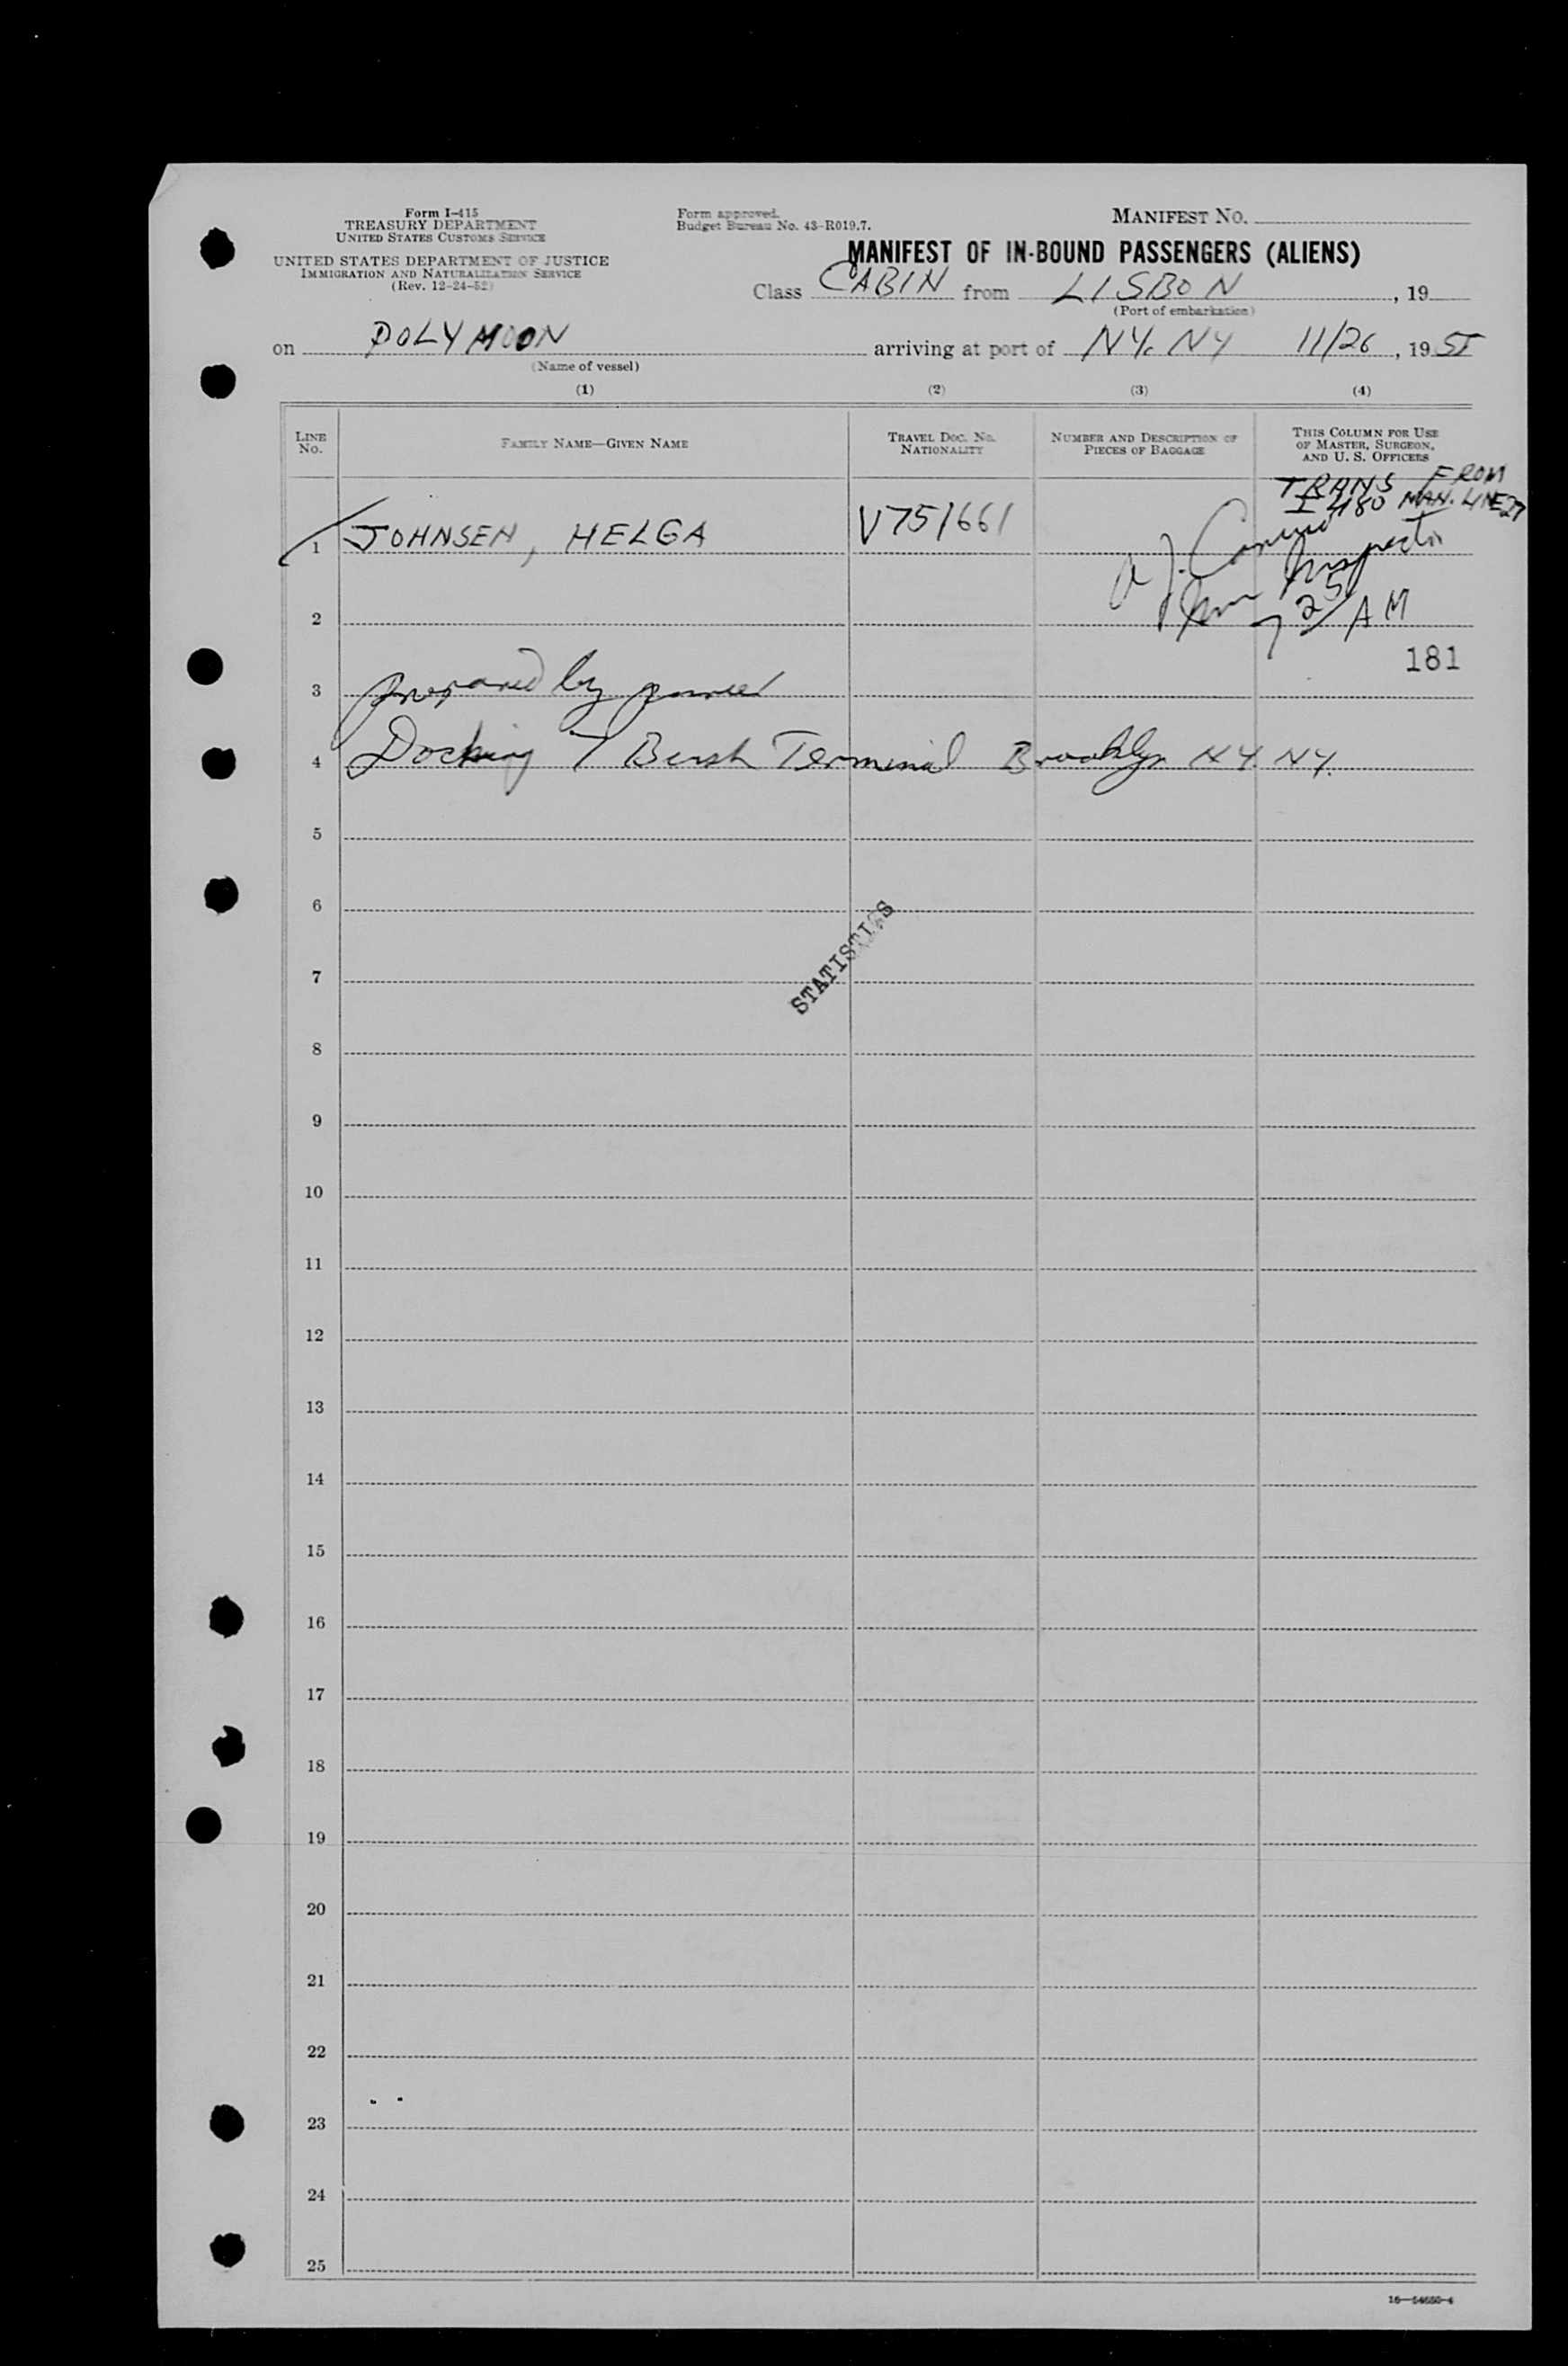 Form I-415
TREASURY DEPARTMENT
UNITED STATES CUSTOMS SERVICE
UNITED STATES DEPARTMENT OF JUSTICE
IMMIGRATION AND NATURALIZATION SERVICE
(Rev. 12-24-52)
Form approved.
Budget Bureau No. 43-R019.7.
MANIFEST NO.
MANIFEST OF IN-BOUND PASSENGERS (ALIENS)
Class CABIN from LISBON, 19
(Port of embarkation)
on POLYMOON arriving at port of NY. NY 11/26, 19
(Name of vessel)
(1) (2) (3) (4)
LINE NO. FAMILY NAME—GIVEN NAME TRAVEL DOC. NO. NATIONALITY NUMBER AND DESCRIPTION OF PIECES OF BAGGAGE THIS COLUMN FOR USE OF MASTER, SURGEON, AND U. S. OFFICERS
TRANS FROM
I 480 MAN. LINE 27
1 JOHNSEN, HELGA V751661
Imm Inspector
2 7 25/AM
181
3 prepared by
4 Docking 7 Bush Terminal Brooklyn NY. NY.
5
6
STATISTICS
7
8
9
10
11
12
13
14
15
16
17
18
19
20
21
22
23
24
25